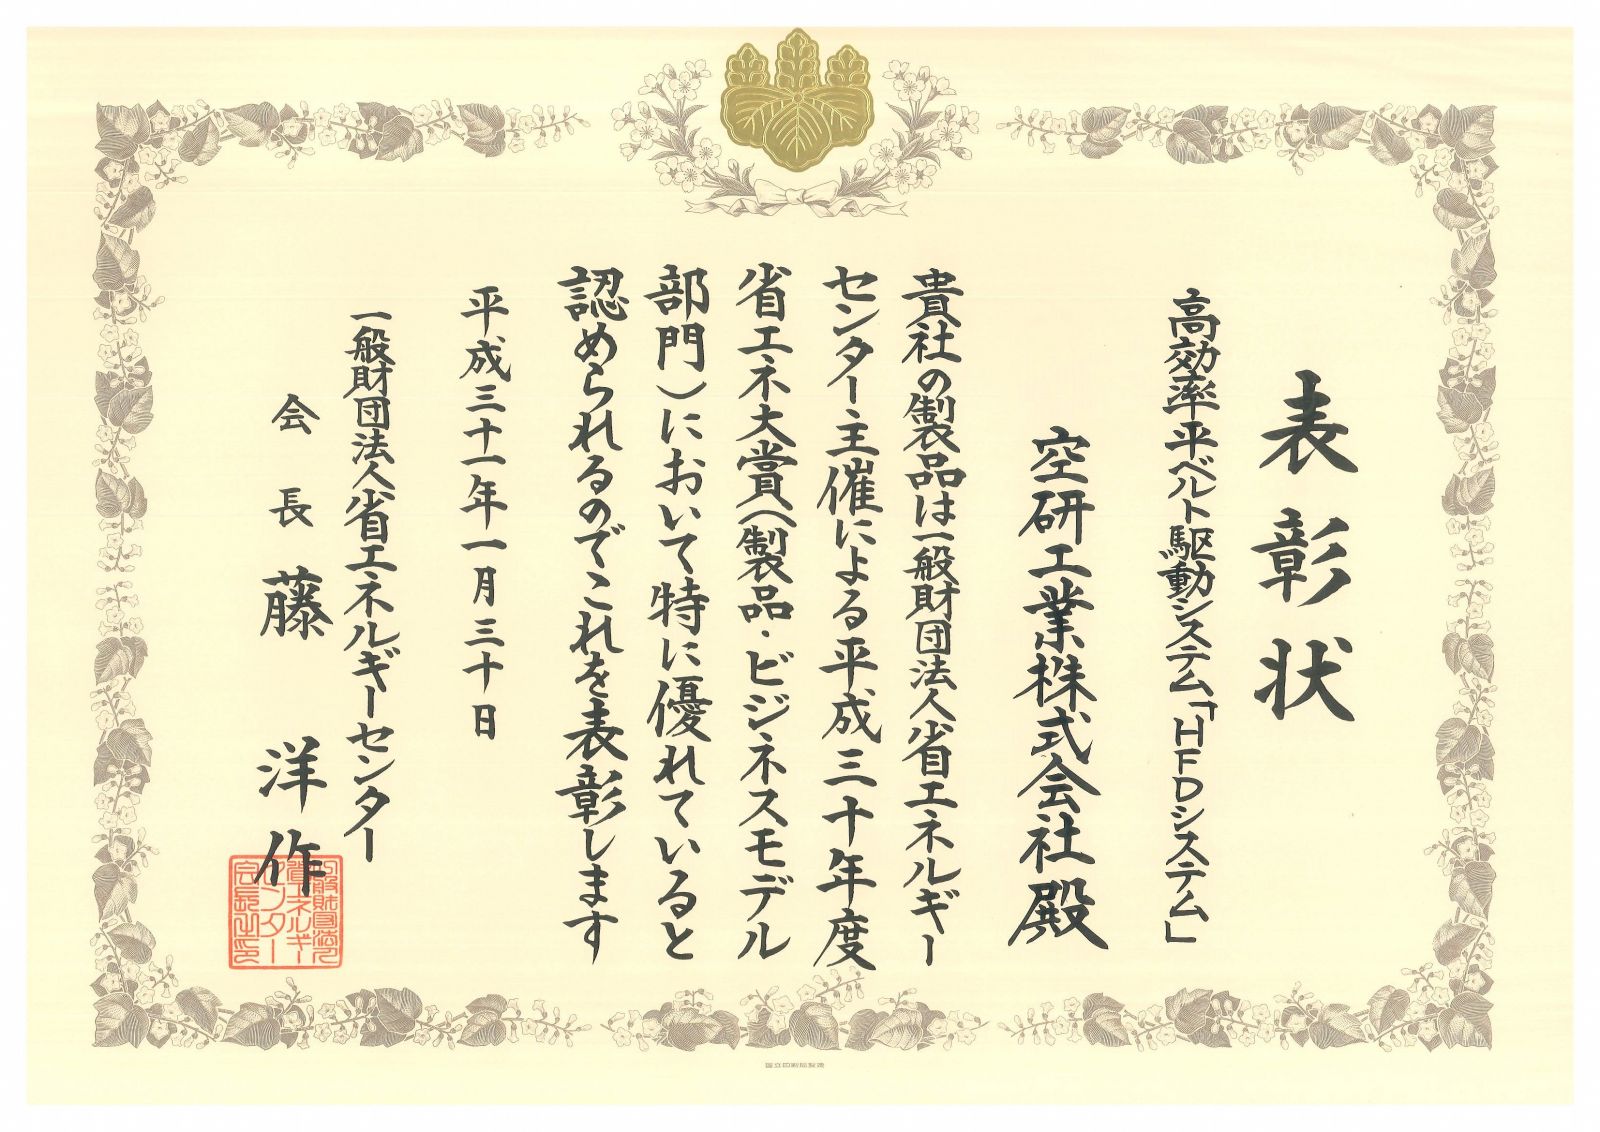 表彰状
高効率平ベルト駆動システム「HFDシステム」
空研工業株式会社殿
貴社の製品は一般財団法人省エネルギー
センター主催による平成三十年度
省エネ大賞(製品・ビジネスモデル
部門)において特に優れていると
認められるのでこれを表彰します
平成三十一年一月三十日
一般財団法人省エネルギーセンター
会長 藤洋作
一般財団法人
省エネルギー
センター
会長之印
国立印刷局製造